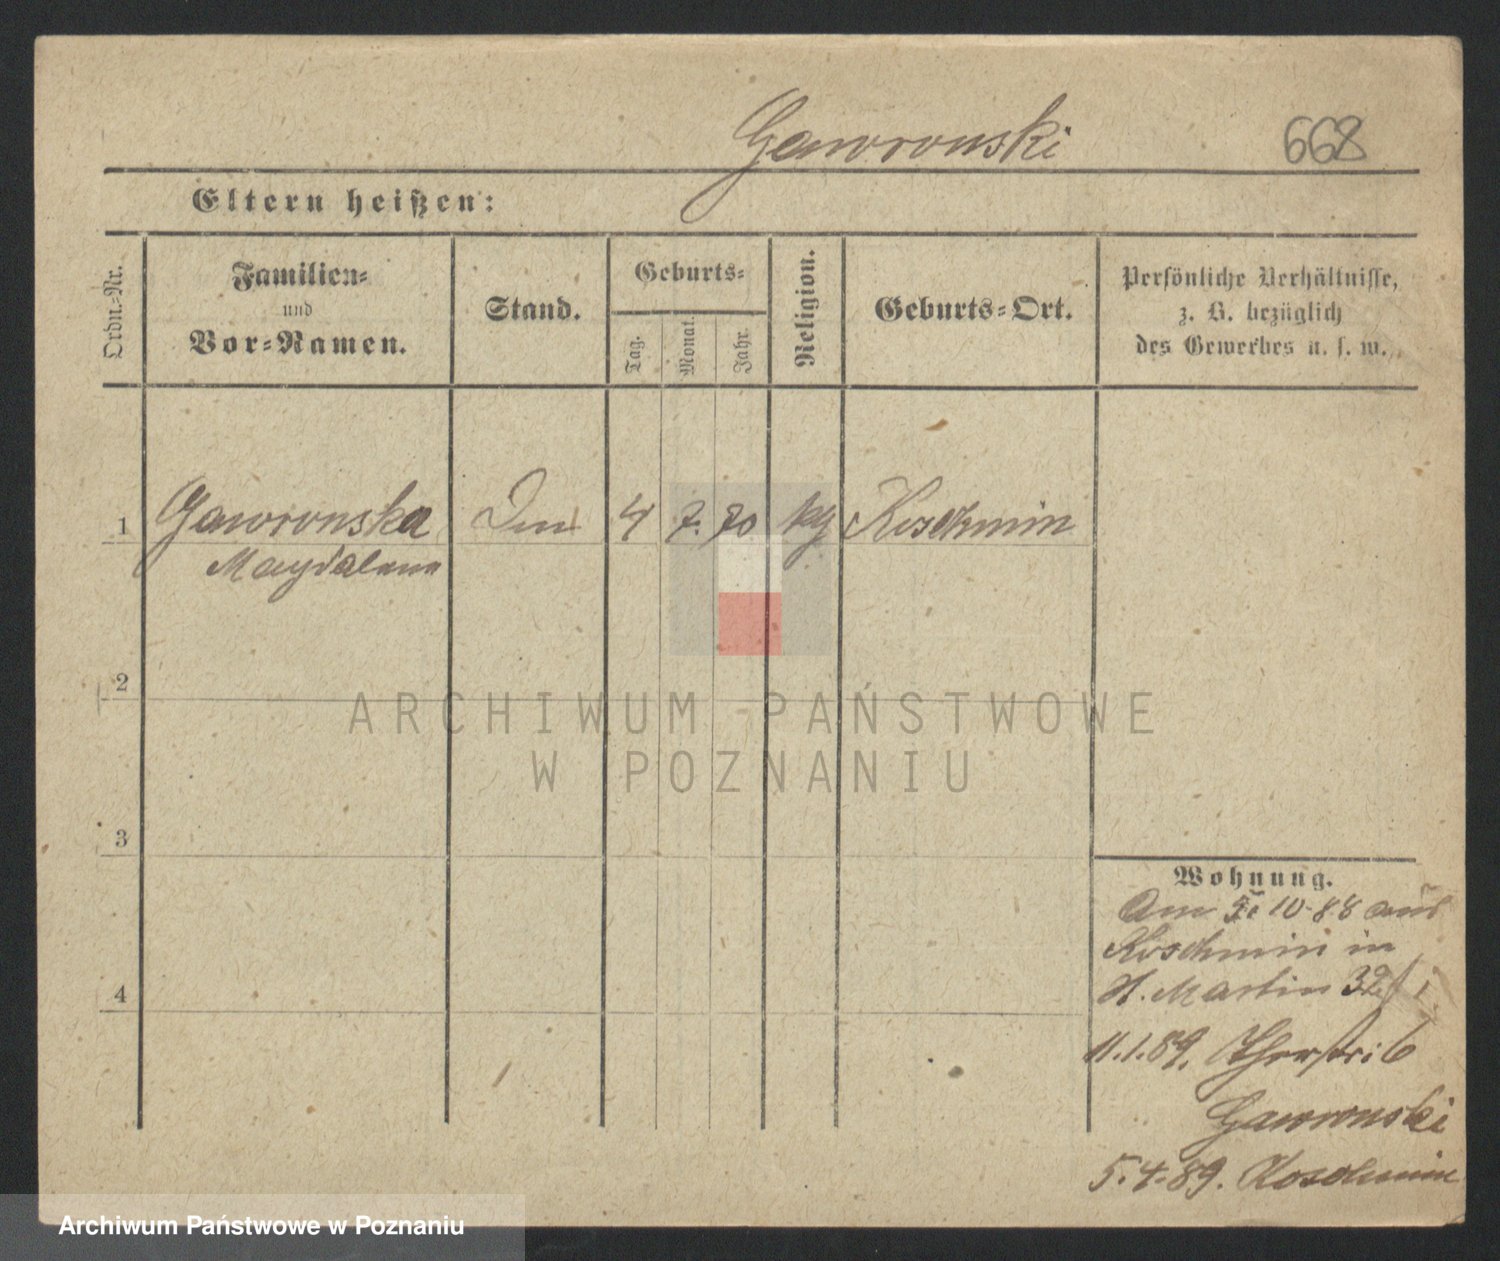 Gaworonski 668
Eltern heißen:
Ordn.-Nr.
Familien-
und
Vor-Namen.
Stand.
Geburts-
Tag.
Monat.
Jahr.
Religion.
Geburts-Ort.
Persönliche Verhältnisse,
z. B. bezüglich
des Gewerbes u. s. w.
1 Gaworonska 4 7. 70 kg Koschmin
Magdalena
2
3
4
Wohnung.
Am 10.88 aus
Koschmin in
St. Martin 32
11.1.89. 6
Gaworonski
5.4.89. Koschmin
ARCHIWUM PAŃSTWOWE
W POZNANIU
Archiwum Państwowe w Poznaniu